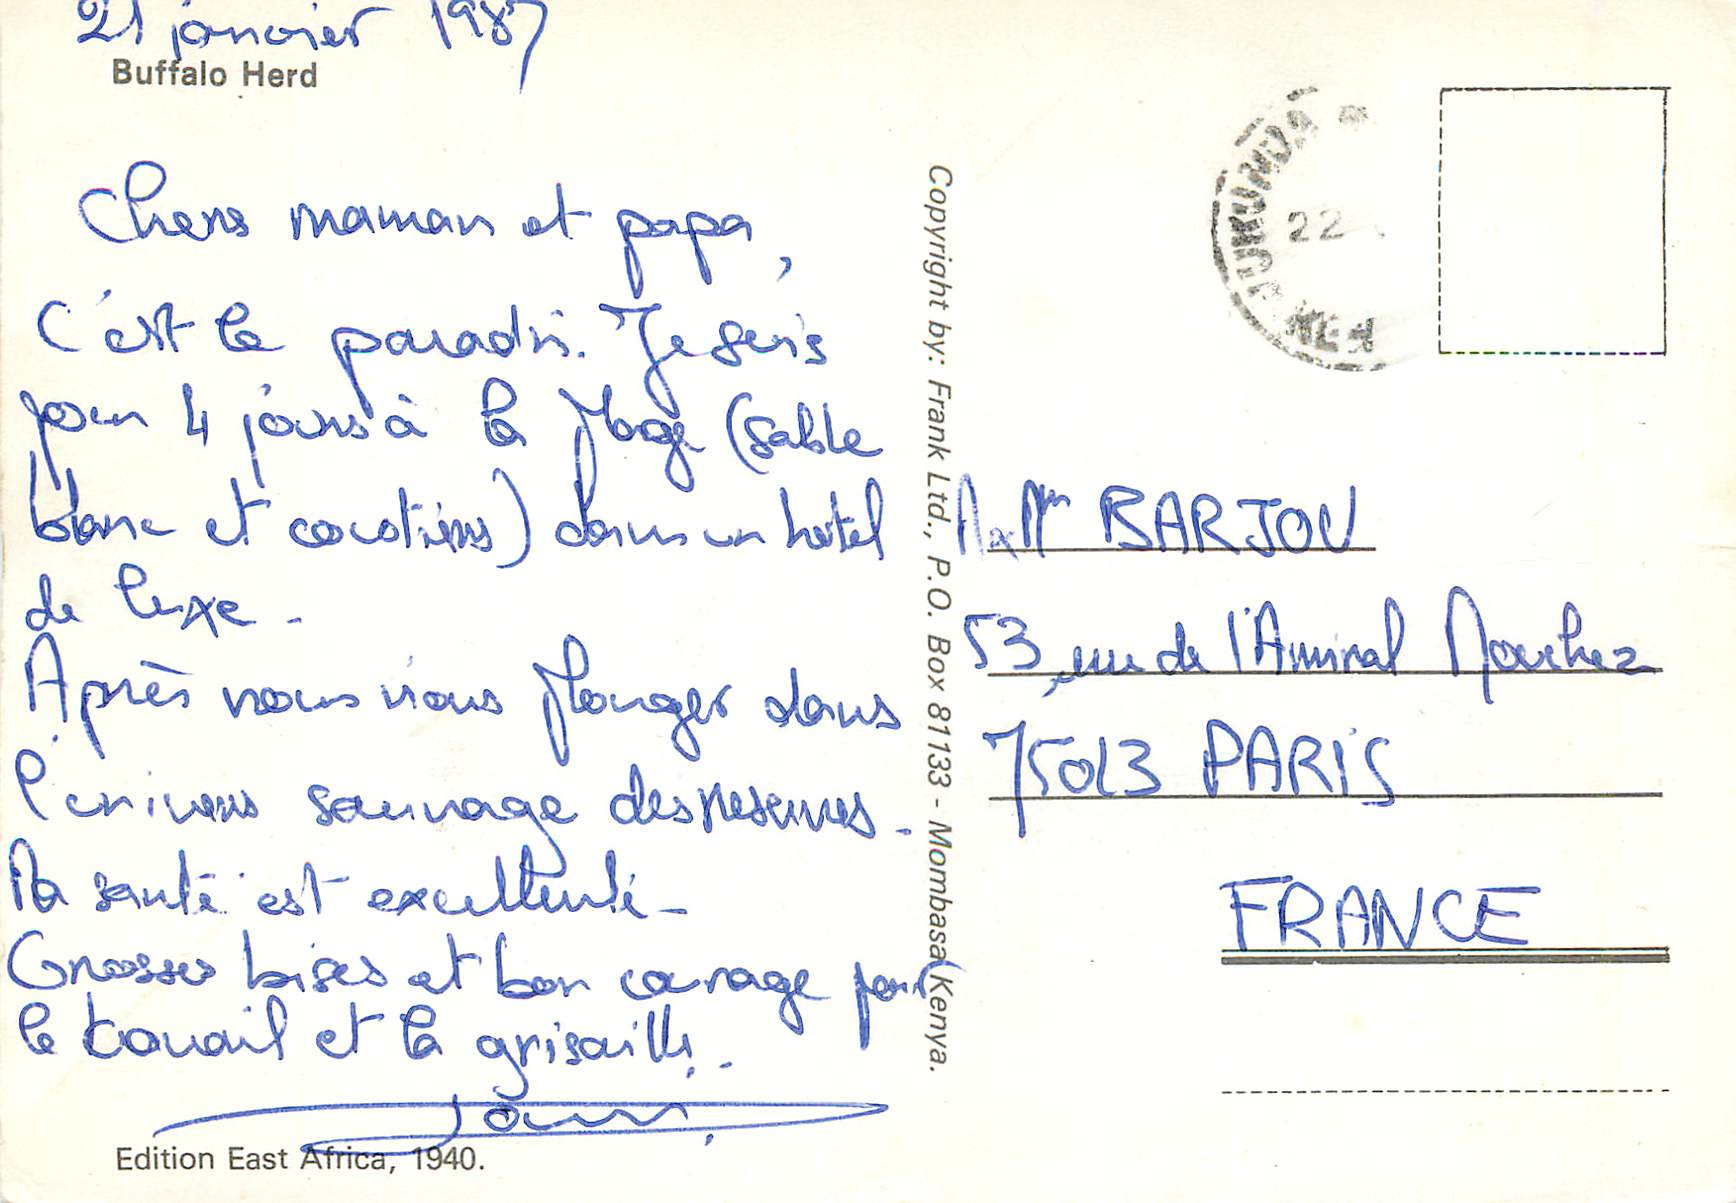 21 janvier 1987
Buffalo Herd
Chers maman et papa,
C'est le paradis. Je suis
pour 4 jours à la plage (sable
blanc et cocotiers) dans un hotel
de luxe -
Après nous irons plonger dans
l'univers sauvage des reserves -
Ma santé est excellente -
Grosses bises et bon courage pour
le travail et la grisaille -
Edition East Africa, 1940.
Copyright by: Frank Ltd., P.O. Box 81133 - Mombasa/Kenya.
UKUNDA
22
KEN
M & Mme BARJOU
53, rue de l'Amiral Mouchez
75013 PARIS
FRANCE